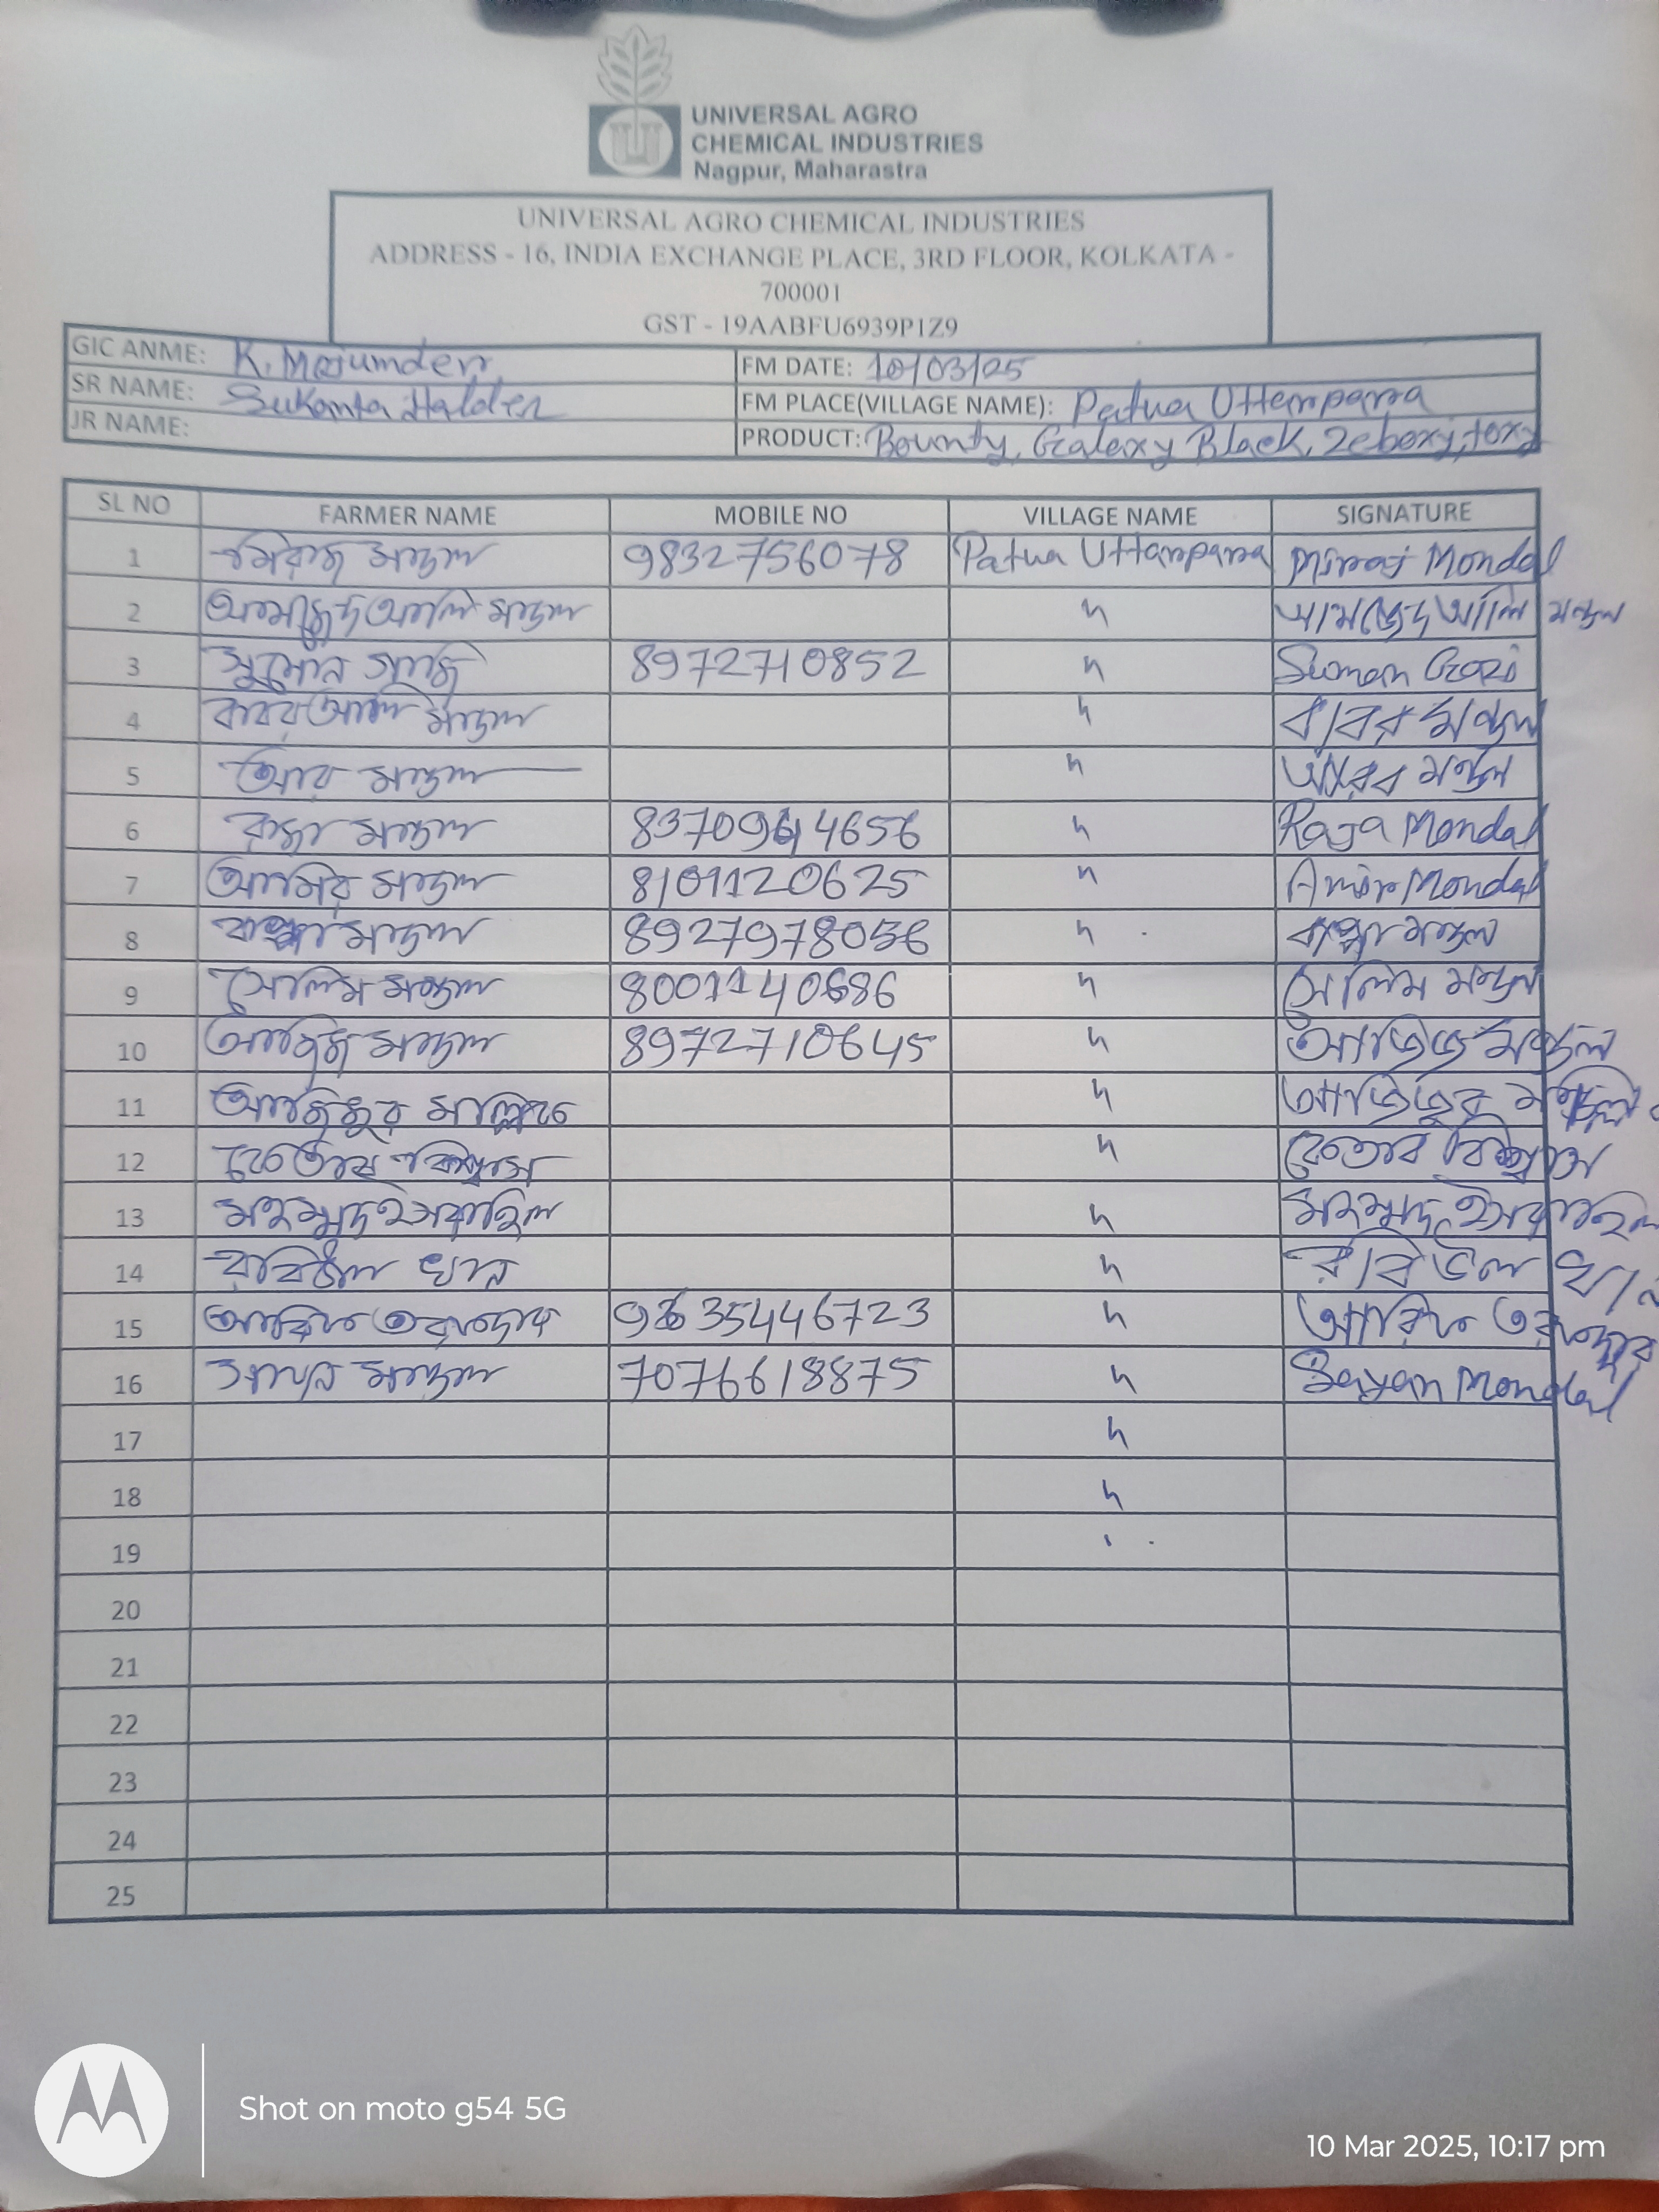 UNIVERSAL AGRO
CHEMICAL INDUSTRIES
Nagpur, Maharastra
UNIVERSAL AGRO CHEMICAL INDUSTRIES
ADDRESS - 16, INDIA EXCHANGE PLACE, 3RD FLOOR, KOLKATA -
700001
GST - 19AABFU6939P1Z9
GIC ANME: K. Majumder FM DATE: 10/03/25
SR NAME: Sukanta Halder FM PLACE(VILLAGE NAME): Patua Uttarpara
JR NAME: PRODUCT: Bounty, Galaxy Black, Zeboxy, toxy
SL NO FARMER NAME MOBILE NO VILLAGE NAME SIGNATURE
1 মিরাজ মন্ডল 9832756078 Patua Uttarpara Miraj Mondal
2 আমজেদ আলি মন্ডল " আমজেদ আলি মন্ডল
3 সুমন গাজি 8972710852 " Suman Gazi
4 বাবর আলি মন্ডল " বাবর মন্ডল
5 মন্ডল " মন্ডল
6 রাজা মন্ডল 4656 " Raja Mondal
7 আমির মন্ডল 8101120625 " Amir Mondal
8 বাপ্পা মন্ডল " বাপ্পা মন্ডল
9 সেলিম মন্ডল " সেলিম মন্ডল
10 আজিজ মন্ডল 8972710645 " আজিজ মন্ডল
11 আজিজুর " আজিজুর
12 বিশ্বাস " বিশ্বাস
13 মহম্মদ ইসরাইল " মহম্মদ ইসরাইল
14 রবিউল খান " রবিউল খান
15 আরিফ তরফদার " আরিফ তরফদার
16 সায়ন মন্ডল 7076618875 " Sayan Mondal
17 "
18 "
19
20
21
22
23
24
25
Shot on moto g54 5G
10 Mar 2025, 10:17 pm